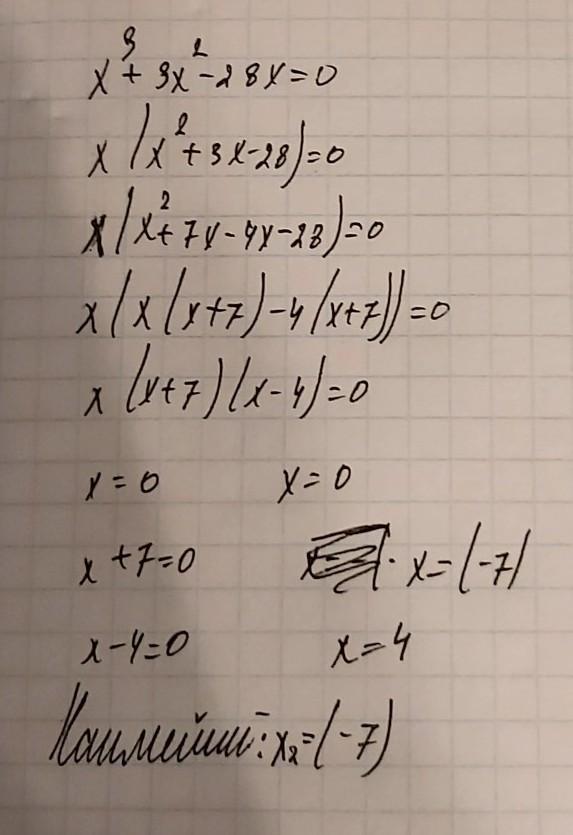 x³+3x²-28x=0
x(x²+3x-28)=0
x(x²+7x-4x-28)=0
x(x(x+7)-4(x+7))=0
x(x+7)(x-4)=0
x=0 x=0
x+7=0 x=(-7)
x-4=0 x=4
x₂=(-7)